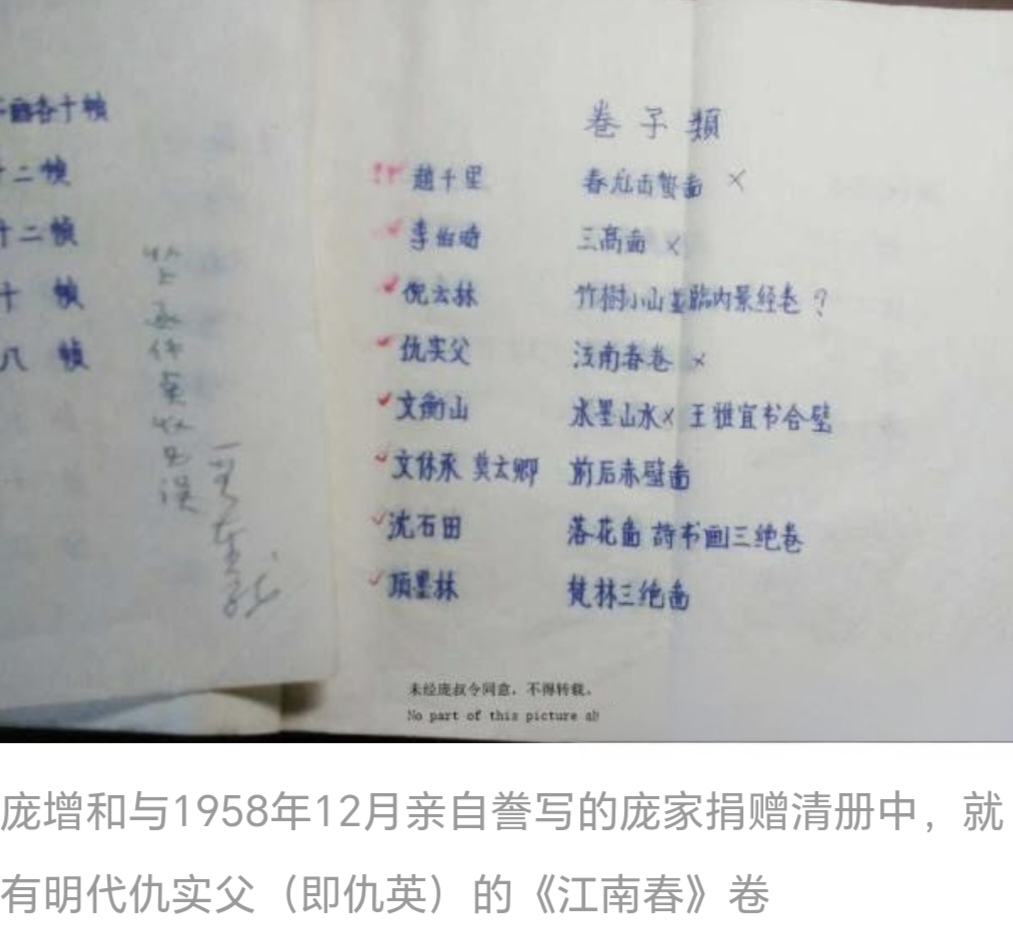 画各十帧
十二帧
十二帧
十 帧
八 帧
卷子類
趙千里 春龙出蟄啚 ×
李伯时 三高啚 ×
倪云林 竹樹小山並臨内景经卷 ?
仇实父 江南春卷 ×
文衡山 水墨山水× 王雅宜书合壁
文休承 莫云卿 前后赤壁啚
沈石田 落花啚 詩书画三绝卷
項墨林 梵林三绝啚
未经庞叔令同意，不得转载。
No part of this picture ab
庞增和与1958年12月亲自誊写的庞家捐赠清册中，就
有明代仇实父（即仇英）的《江南春》卷